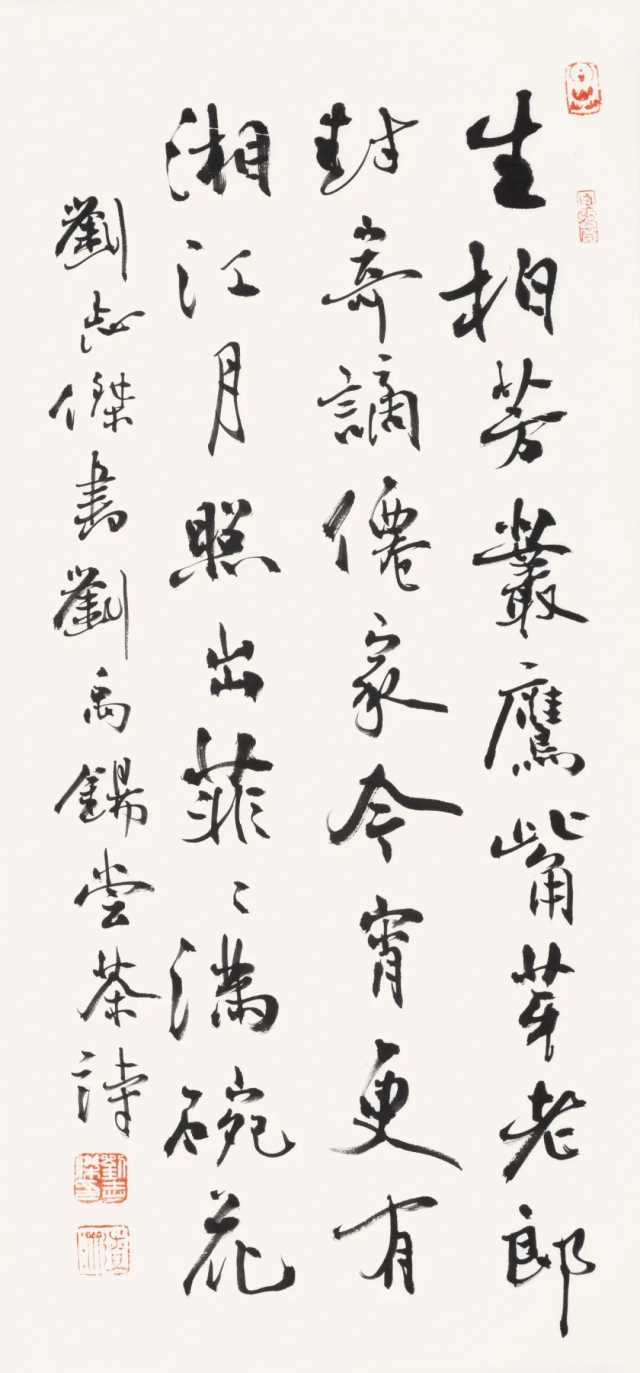 生拍芳叢鷹觜芽老郎
封寄謫僊家今宵更有
湘江月照出菲〻滿碗花
劉志傑書劉禹錫尝茶詩